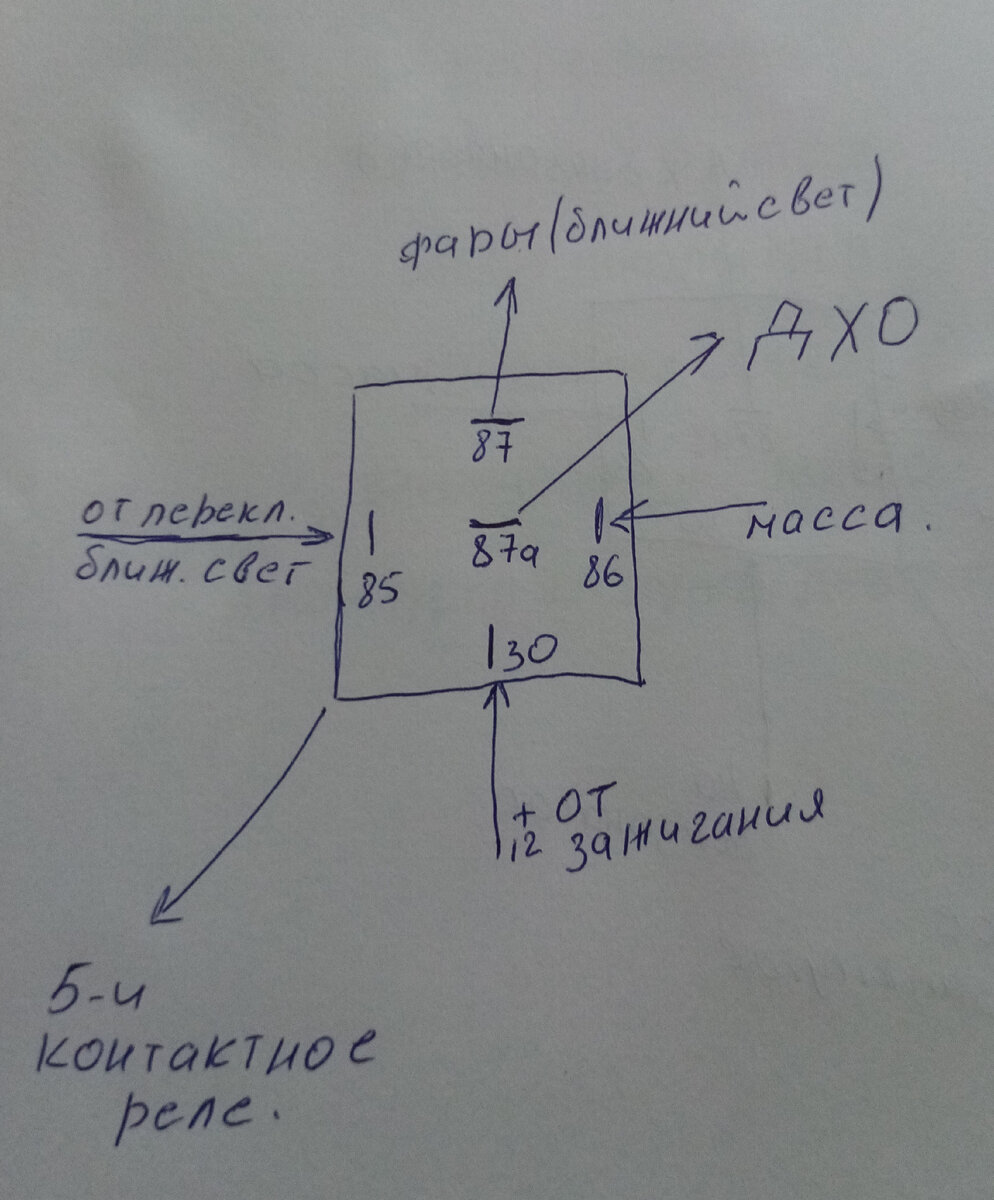 фары (ближний свет)
ДХО
87
от перекл.
ближ. свет
85
87а
86
масса.
30
+ от
12 зажигания
5-и
контактное
реле.